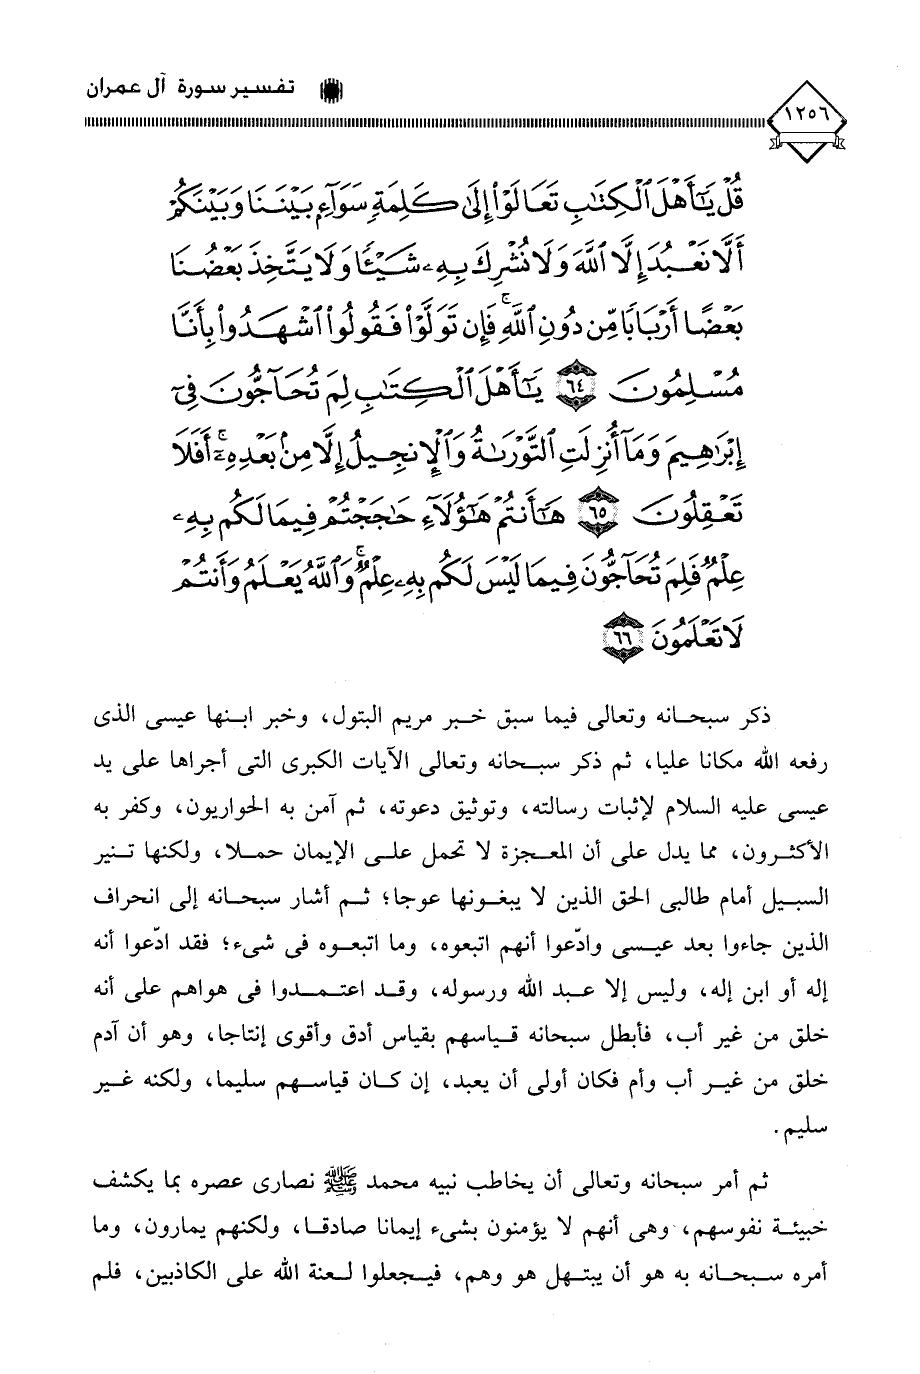 تفسير سورة آل عمران
١٢٥٦
قُلْ يَٰٓأَهْلَ ٱلْكِتَٰبِ تَعَالَوْا۟ إِلَىٰ كَلِمَةٍ سَوَآءٍۭ بَيْنَنَا وَبَيْنَكُمْ
أَلَّا نَعْبُدَ إِلَّا ٱللَّهَ وَلَا نُشْرِكَ بِهِۦ شَيْـًٔا وَلَا يَتَّخِذَ بَعْضُنَا
بَعْضًا أَرْبَابًا مِّن دُونِ ٱللَّهِ ۚ فَإِن تَوَلَّوْا۟ فَقُولُوا۟ ٱشْهَدُوا۟ بِأَنَّا
مُسْلِمُونَ ٦٤ يَٰٓأَهْلَ ٱلْكِتَٰبِ لِمَ تُحَآجُّونَ فِىٓ
إِبْرَٰهِيمَ وَمَآ أُنزِلَتِ ٱلتَّوْرَىٰةُ وَٱلْإِنجِيلُ إِلَّا مِنۢ بَعْدِهِۦٓ ۚ أَفَلَا
تَعْقِلُونَ ٦٥ هَٰٓأَنتُمْ هَٰٓؤُلَآءِ حَٰجَجْتُمْ فِيمَا لَكُم بِهِۦ
عِلْمٌ فَلِمَ تُحَآجُّونَ فِيمَا لَيْسَ لَكُم بِهِۦ عِلْمٌ ۚ وَٱللَّهُ يَعْلَمُ وَأَنتُمْ
لَا تَعْلَمُونَ ٦٦
ذكر سبحانه وتعالى فيما سبق خبر مريم البتول، وخبر ابنها عيسى الذى
رفعه الله مكانا عليا، ثم ذكر سبحانه وتعالى الآيات الكبرى التى أجراها على يد
عيسى عليه السلام لإثبات رسالته، وتوثيق دعوته، ثم آمن به الحواريون، وكفر به
الأكثرون، مما يدل على أن المعجزة لا تحمل على الإيمان حملا، ولكنها تنير
السبيل أمام طالبى الحق الذين لا يبغونها عوجا؛ ثم أشار سبحانه إلى انحراف
الذين جاءوا بعد عيسى وادّعوا أنهم اتبعوه، وما اتبعوه فى شىء؛ فقد ادّعوا أنه
إله أو ابن إله، وليس إلا عبد الله ورسوله، وقد اعتمدوا فى هواهم على أنه
خلق من غير أب، فأبطل سبحانه قياسهم بقياس أدق وأقوى إنتاجا، وهو أن آدم
خلق من غير أب وأم فكان أولى أن يعبد، إن كان قياسهم سليما، ولكنه غير
سليم.
ثم أمر سبحانه وتعالى أن يخاطب نبيه محمد ﷺ نصارى عصره بما يكشف
خبيئة نفوسهم، وهى أنهم لا يؤمنون بشىء إيمانا صادقا، ولكنهم يمارون، وما
أمره سبحانه به هو أن يبتهل هو وهم، فيجعلوا لعنة الله على الكاذبين، فلم